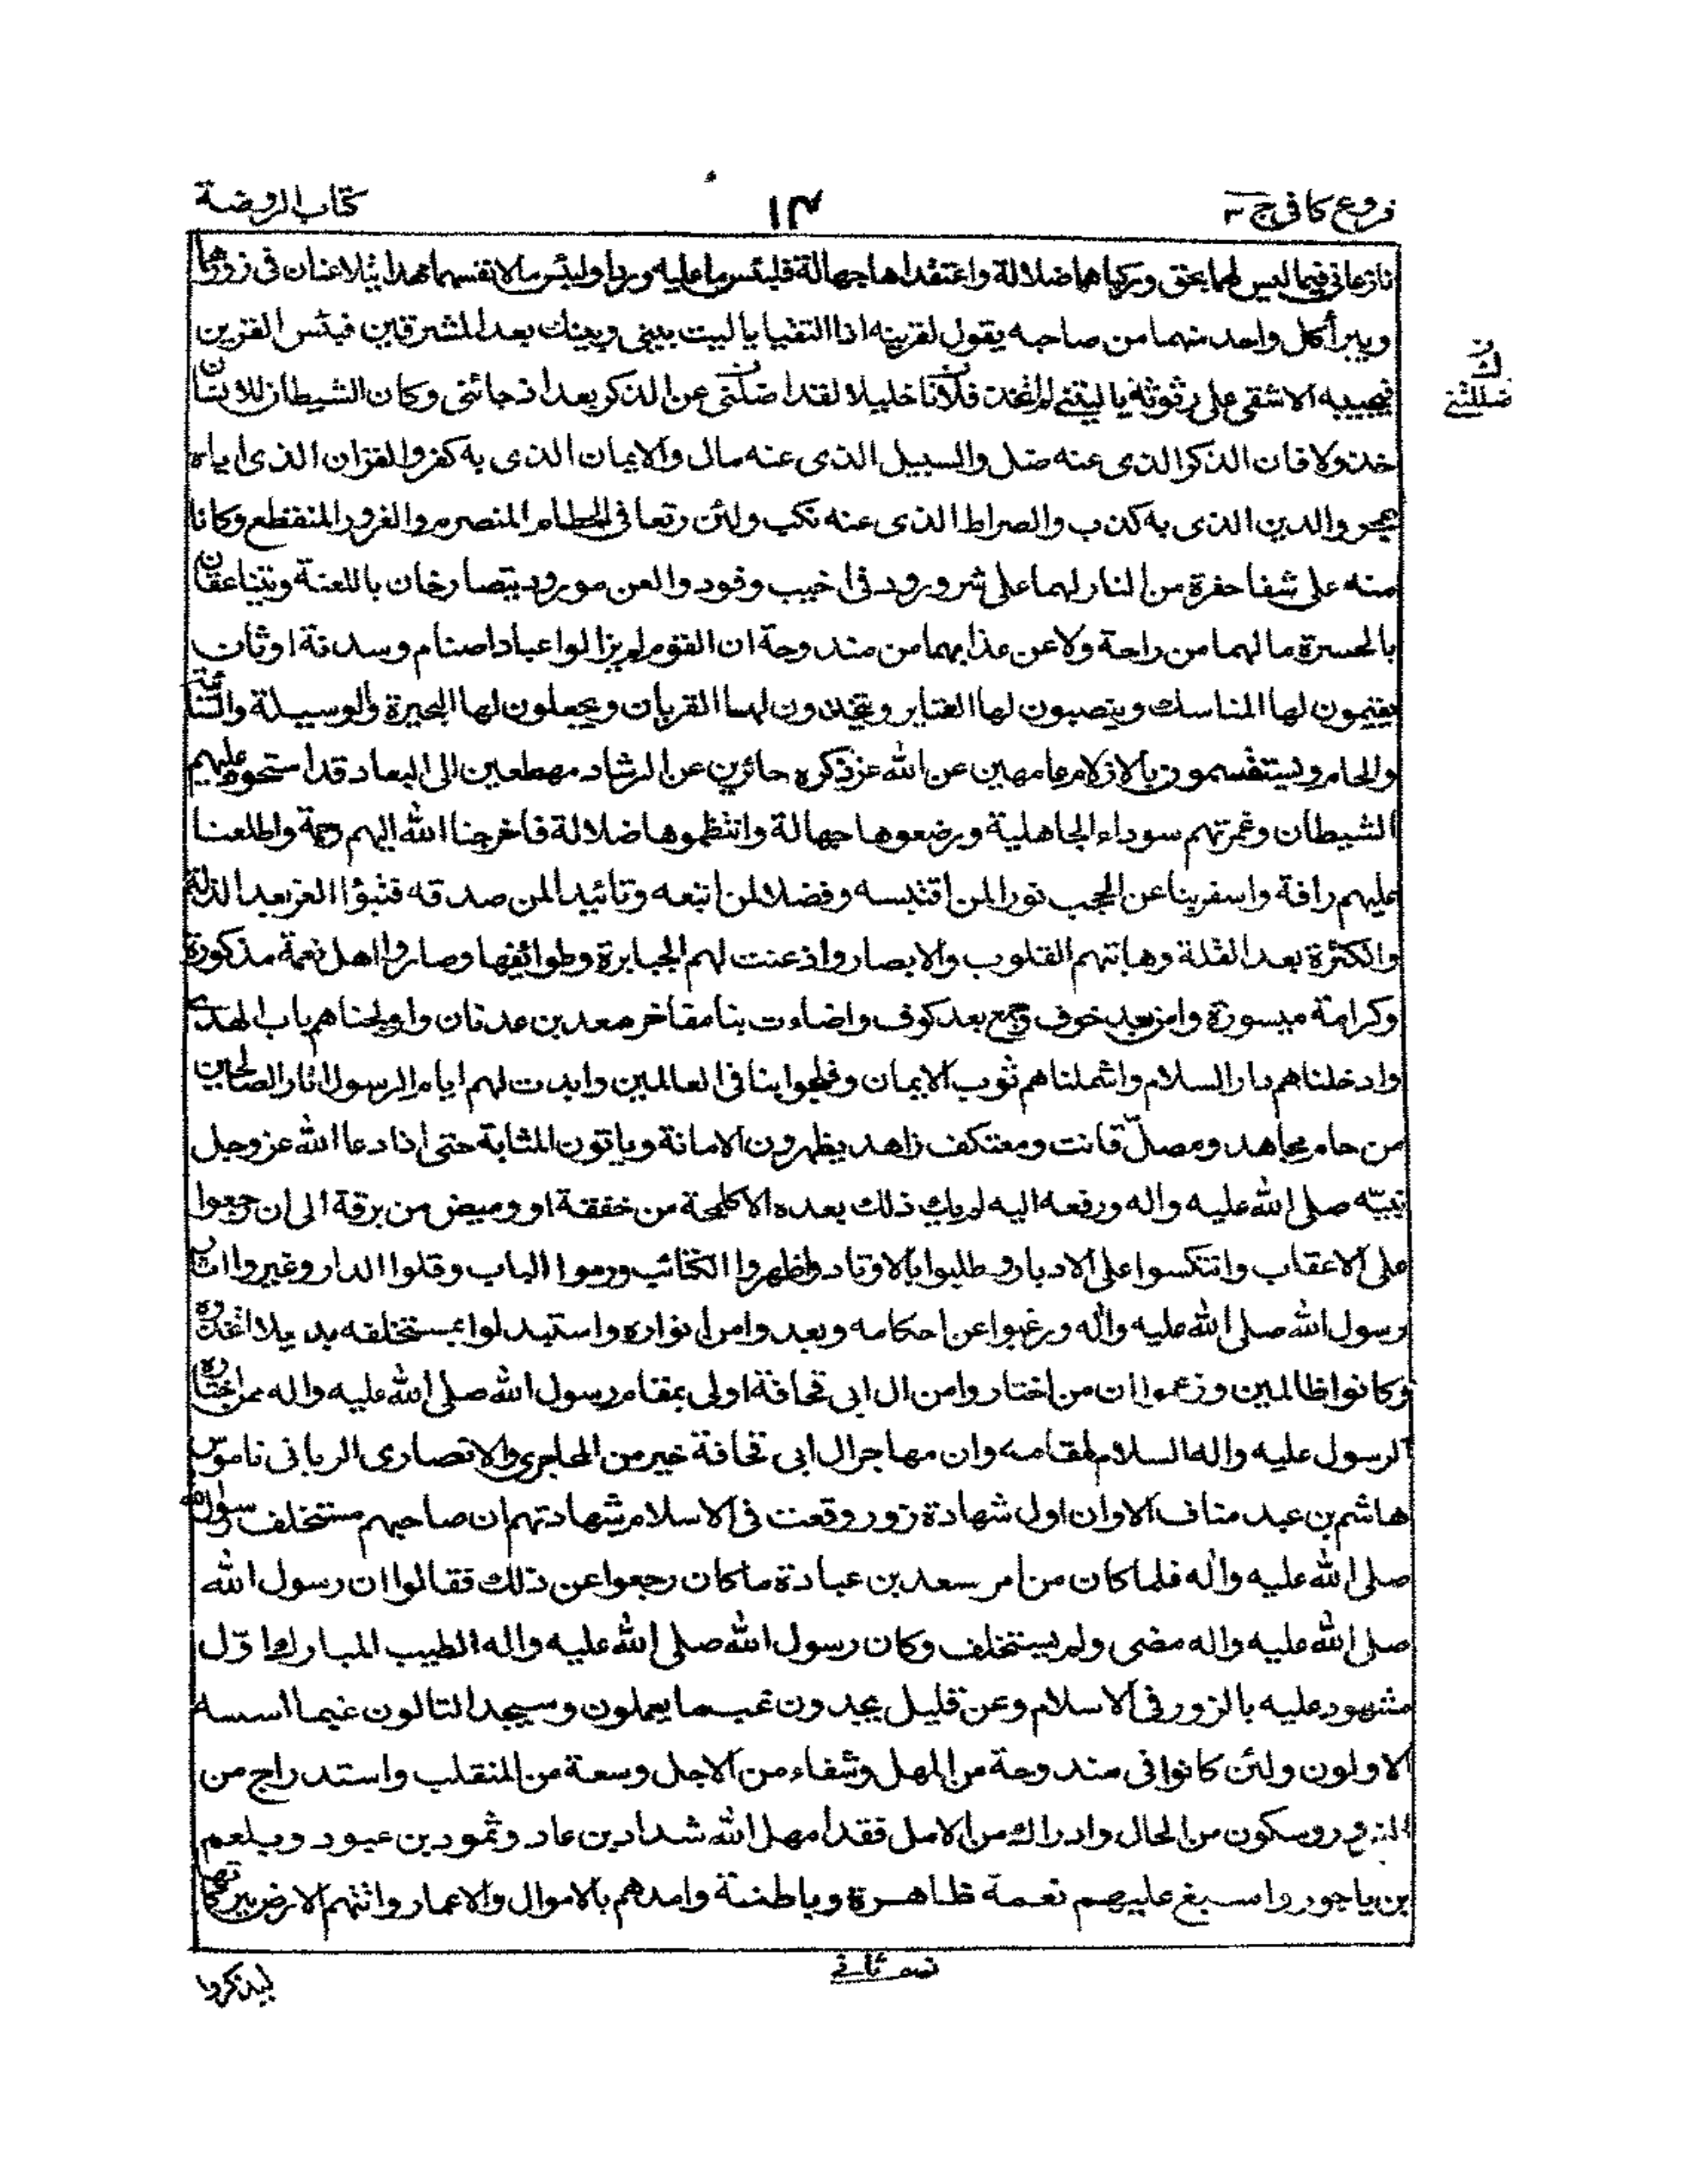 فروع كافى ج ٣
١٤
كتاب الروضة
نازعانى فيما ليس لهما بحق وركباها ضلالة واعتقداها جهالة فلبئس ما عليه وردا ولبئس ما لانفسهما مهدا يتلاعنان فى دورهما
ويبرأ كل واحد منهما من صاحبه يقول لقرينه اذا التقيا يا ليت بينى وبينك بعد المشرقين فبئس القرين
فيجيبه الاشقى على رثوثة يا ليتنى لم اتخذك خليلا لقد اضللتنى عن الذكر بعد اذ جائنى وكان الشيطان للانسان
خذولا فان الذكر الذى عنه ضل والسبيل الذى عنه مال والايمان الذى به كفر والقران الذى اياه
هجر والدين الذى به كذب والصراط الذى عنه نكب ولئن رتعا فى الحطام المنصرم والغرور المنقطع وكانا
منه على شفا حفرة من النار لهما على شر ورود فى اخيب وفود والعن مورود يتصارخان باللعنة ويتناعقان
بالحسرة ما لهما من راحة ولا عن عذابهما من مندوحة ان القوم لم يزالوا عباد اصنام وسدنة اوثان
يقيمون لها المناسك وينصبون لها العتاير ويتخذون لها القربان ويجعلون لها البحيرة والوسيلة والسائبة
والحام ويستقسمون بالازلام عامهين عن الله عز ذكره حائرين عن الرشاد مهطعين الى البعاد قد استحوذ عليهم
الشيطان وغمرتهم سوداء الجاهلية ورضعوها جهالة وانتظموها ضلالة فاخرجنا الله اليهم رحمة واطلعنا
عليهم رافة واسفر بنا عن الحجب نورا لمن اقتبسه وفضلا لمن اتبعه وتائيدا لمن صدقه فتبؤا العز بعد الذلة
والكثرة بعد القلة وهابتهم القلوب والابصار واذعنت لهم الجبابرة وطوائفها وصاروا اهل نعمة مذكورة
وكرامة ميسورة وامن بعد خوف وجمع بعد كوف واضاءت بنا مفاخر معد بن عدنان واولجناهم باب الهدى
وادخلناهم دار السلام واشملناهم ثوب الايمان وفلجوا بنا فى العالمين وابدت لهم ايام الرسول اثار الصالحين
من حام مجاهد ومصلّ قانت ومعتكف زاهد يظهرون الامانة وياتون المثابة حتى اذا دعا الله عز وجل
نبيّه صلى الله عليه واله ورفعه اليه لم يك ذلك بعده الا كلمحة من خفقة او وميض من برقة الى ان رجعوا
على الاعقاب وانتكسوا على الادبار وطلبوا بالاوتاد واظهروا الكتائب وردموا الباب وفلوا الدار وغيروا اثار
رسول الله صلى الله عليه واله ورغبوا عن احكامه وبعدوا من انواره واستبدلوا بمستخلفه بديلا اتخذوه
وكانوا ظالمين وزعموا ان من اختاروا من ال ابى قحافة اولى بمقام رسول الله صلى الله عليه واله ممن اختاره
الرسول عليه واله السلام لمقامه وان مهاجر ال ابى قحافة خير من المهاجرى والانصارى الربانى ناموس
هاشم بن عبد مناف الا وان اول شهادة زور وقعت فى الاسلام شهادتهم ان صاحبهم مستخلف رسول الله
صلى الله عليه واله فلما كان من امر سعد بن عبادة ما كان رجعوا عن ذلك فقالوا ان رسول الله
صلى الله عليه واله مضى ولم يستخلف وكان رسول الله صلى الله عليه واله الطيب المبارك اوّل
مشهود عليه بالزور فى الاسلام وعن قليل يجدون غب ما يعملون وسيجد التالون غب ما اسسه
الاولون ولئن كانوا فى مندوحة من المهل وشفاء من الاجل وسعة من المنقلب واستدراج من
الغرور وسكون من الحال وادراك من الامل فقد امهل الله شداد بن عاد وثمود بن عبود وبلعم
بن باحور واسبغ عليهم نعمة ظاهرة وباطنة وامدهم بالاموال والاعمار واتتهم الارض ببركاتها
ليذكروا